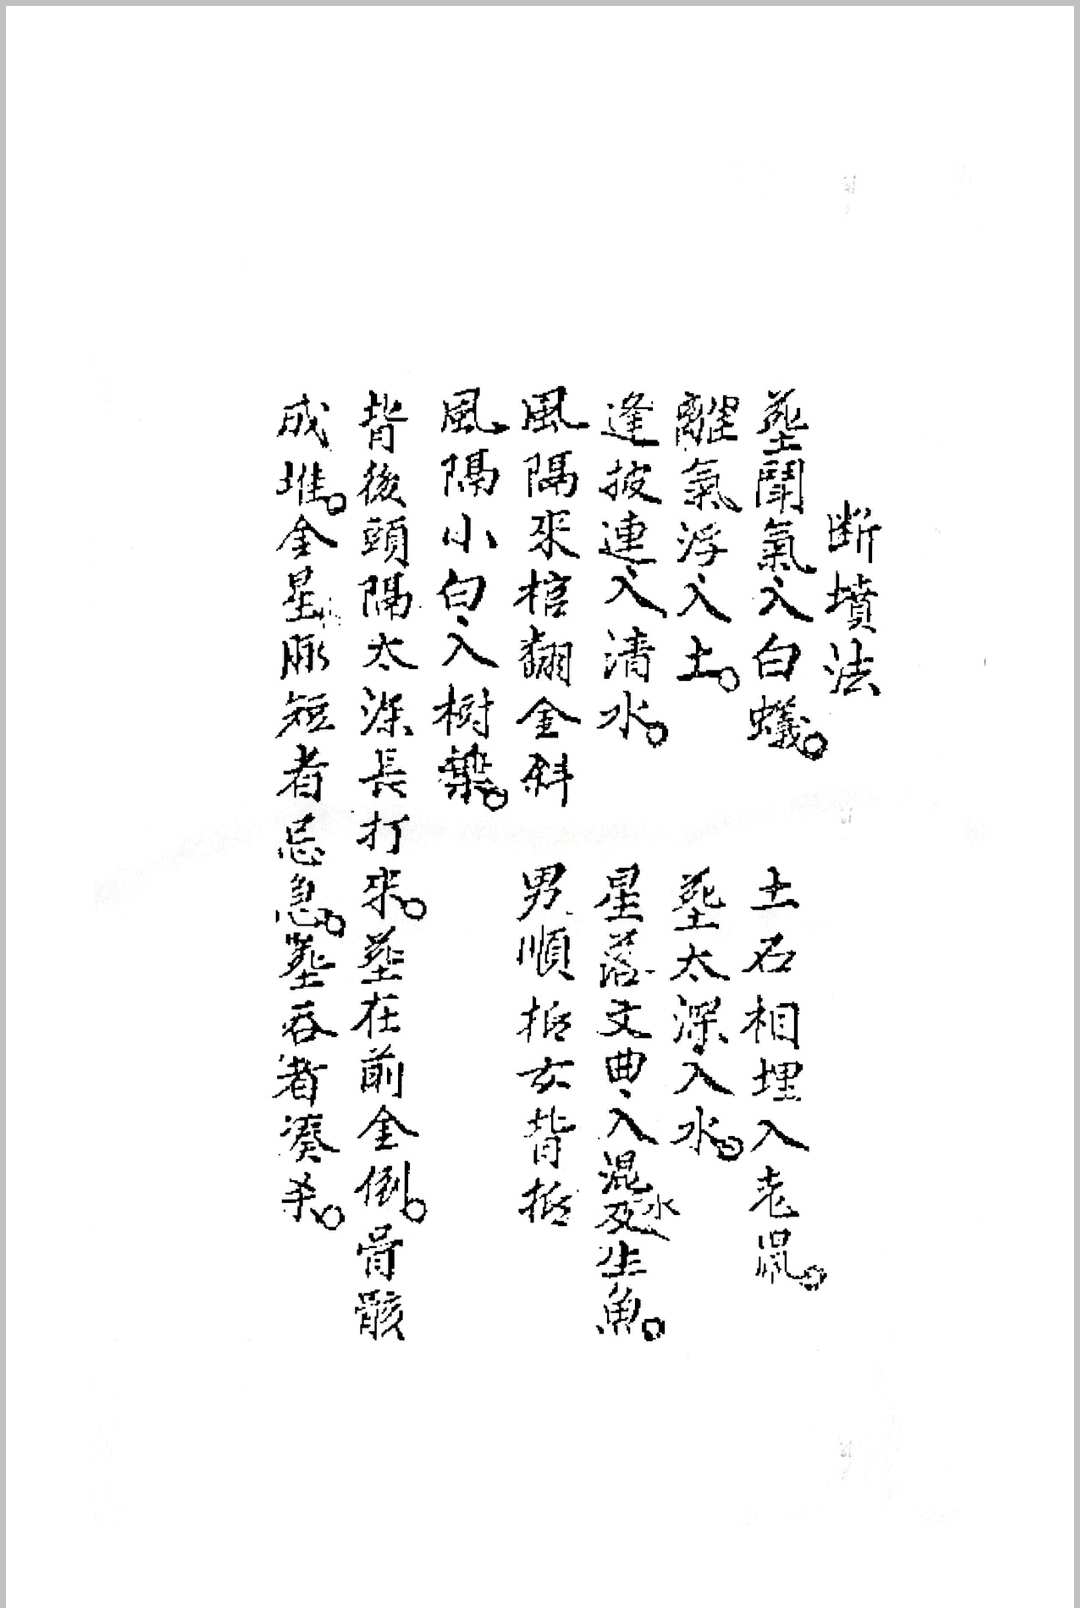 断墳法
塟鬪氣入白蟻。 土石相埋入老鼠。
離氣浮入土。 塟太深入水。
逢披連入清水。 星落文曲入混水及生魚。
風隔來棺翻金斜 男順抵女背抵
風隔小白入樹
背後頭隔太深長打來。塟在前金倒。骨骸
成堆。金星脉短者忌急。塟吞者湊杀。